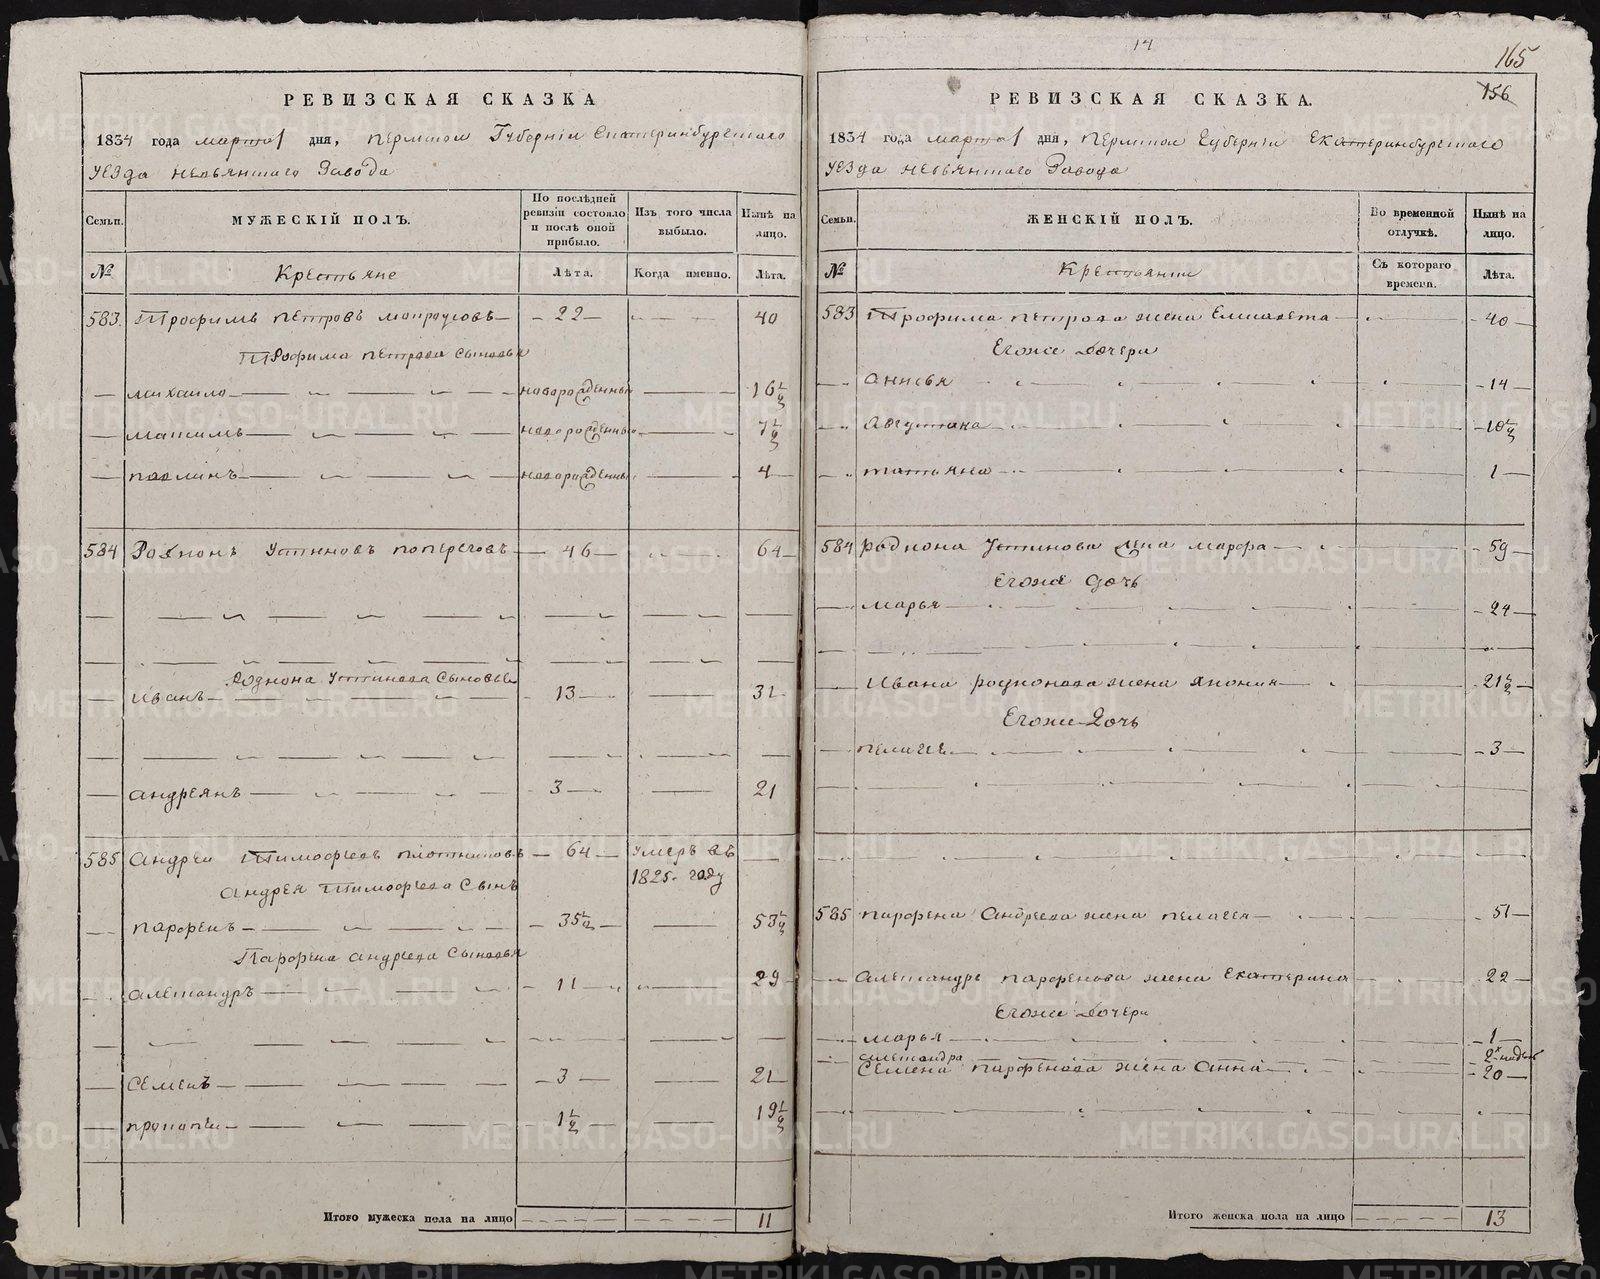 РЕВИЗСКАЯ СКАЗКА
1834 года марта 1 дня, Пермской Губернии Екатеринбургского
уезда невьянского Завода
Семьи.
МУЖЕСКІЙ ПОЛЪ.
По послѣдней ревизіи состояло и послѣ оной прибыло.
Изъ того числа выбыло.
Нынѣ на лицо.
№
Крестьяне
Лѣта.
Когда именно.
Лѣта.
583 Трофимъ петровъ 22 40
Трофима петрова сыновья
михайло новорожденный 16 1/2
максимъ новорожденный 7 1/2
павлинъ новорожденный 4
584 Родионъ Устиновъ поперековъ 46 64
Родиона Устинова Сыновья
иванъ 13 31
андреянъ 3 21
585 андреи Тимофѣевъ плотниковъ 64 умеръ въ
1825 году
андрея Тимофѣева Сынъ
парфенъ 35 1/2 53 1/2
Парфена андрѣева Сыновья
александръ 11 29
Семенъ 3 21
прокопеи 1 1/2 19 1/2
Итого мужеска пола на лицо 11
14
165
156
РЕВИЗСКАЯ СКАЗКА.
1834 года марта 1 дня, Пермской Губернии Екатеринбургского
уезда невьянского Завода
Семьи.
ЖЕНСКІЙ ПОЛЪ.
Во временной отлучкѣ.
Нынѣ на лицо.
№
Крестьянки
Съ котораго времени.
Лѣта.
583 Трофима петрова жена Елисавета 40
Егоже Дочери
анисья 14
Августина 10 1/2
татьяна 1
584 родиона Устинова жена марфа 59
Егоже дочь
марья 24
ивана родионова жена 21 1/2
Егоже Дочь
пелагея 3
585 парфена Андрѣева жена пелагея 51
александра парфенова жена Екатерина 22
Егоже Дочери
марья 1
александра 2 недель
Семена парфенова жена анна 20
Итого женска пола на лицо 13
METRIKI.GASO-URAL.RU